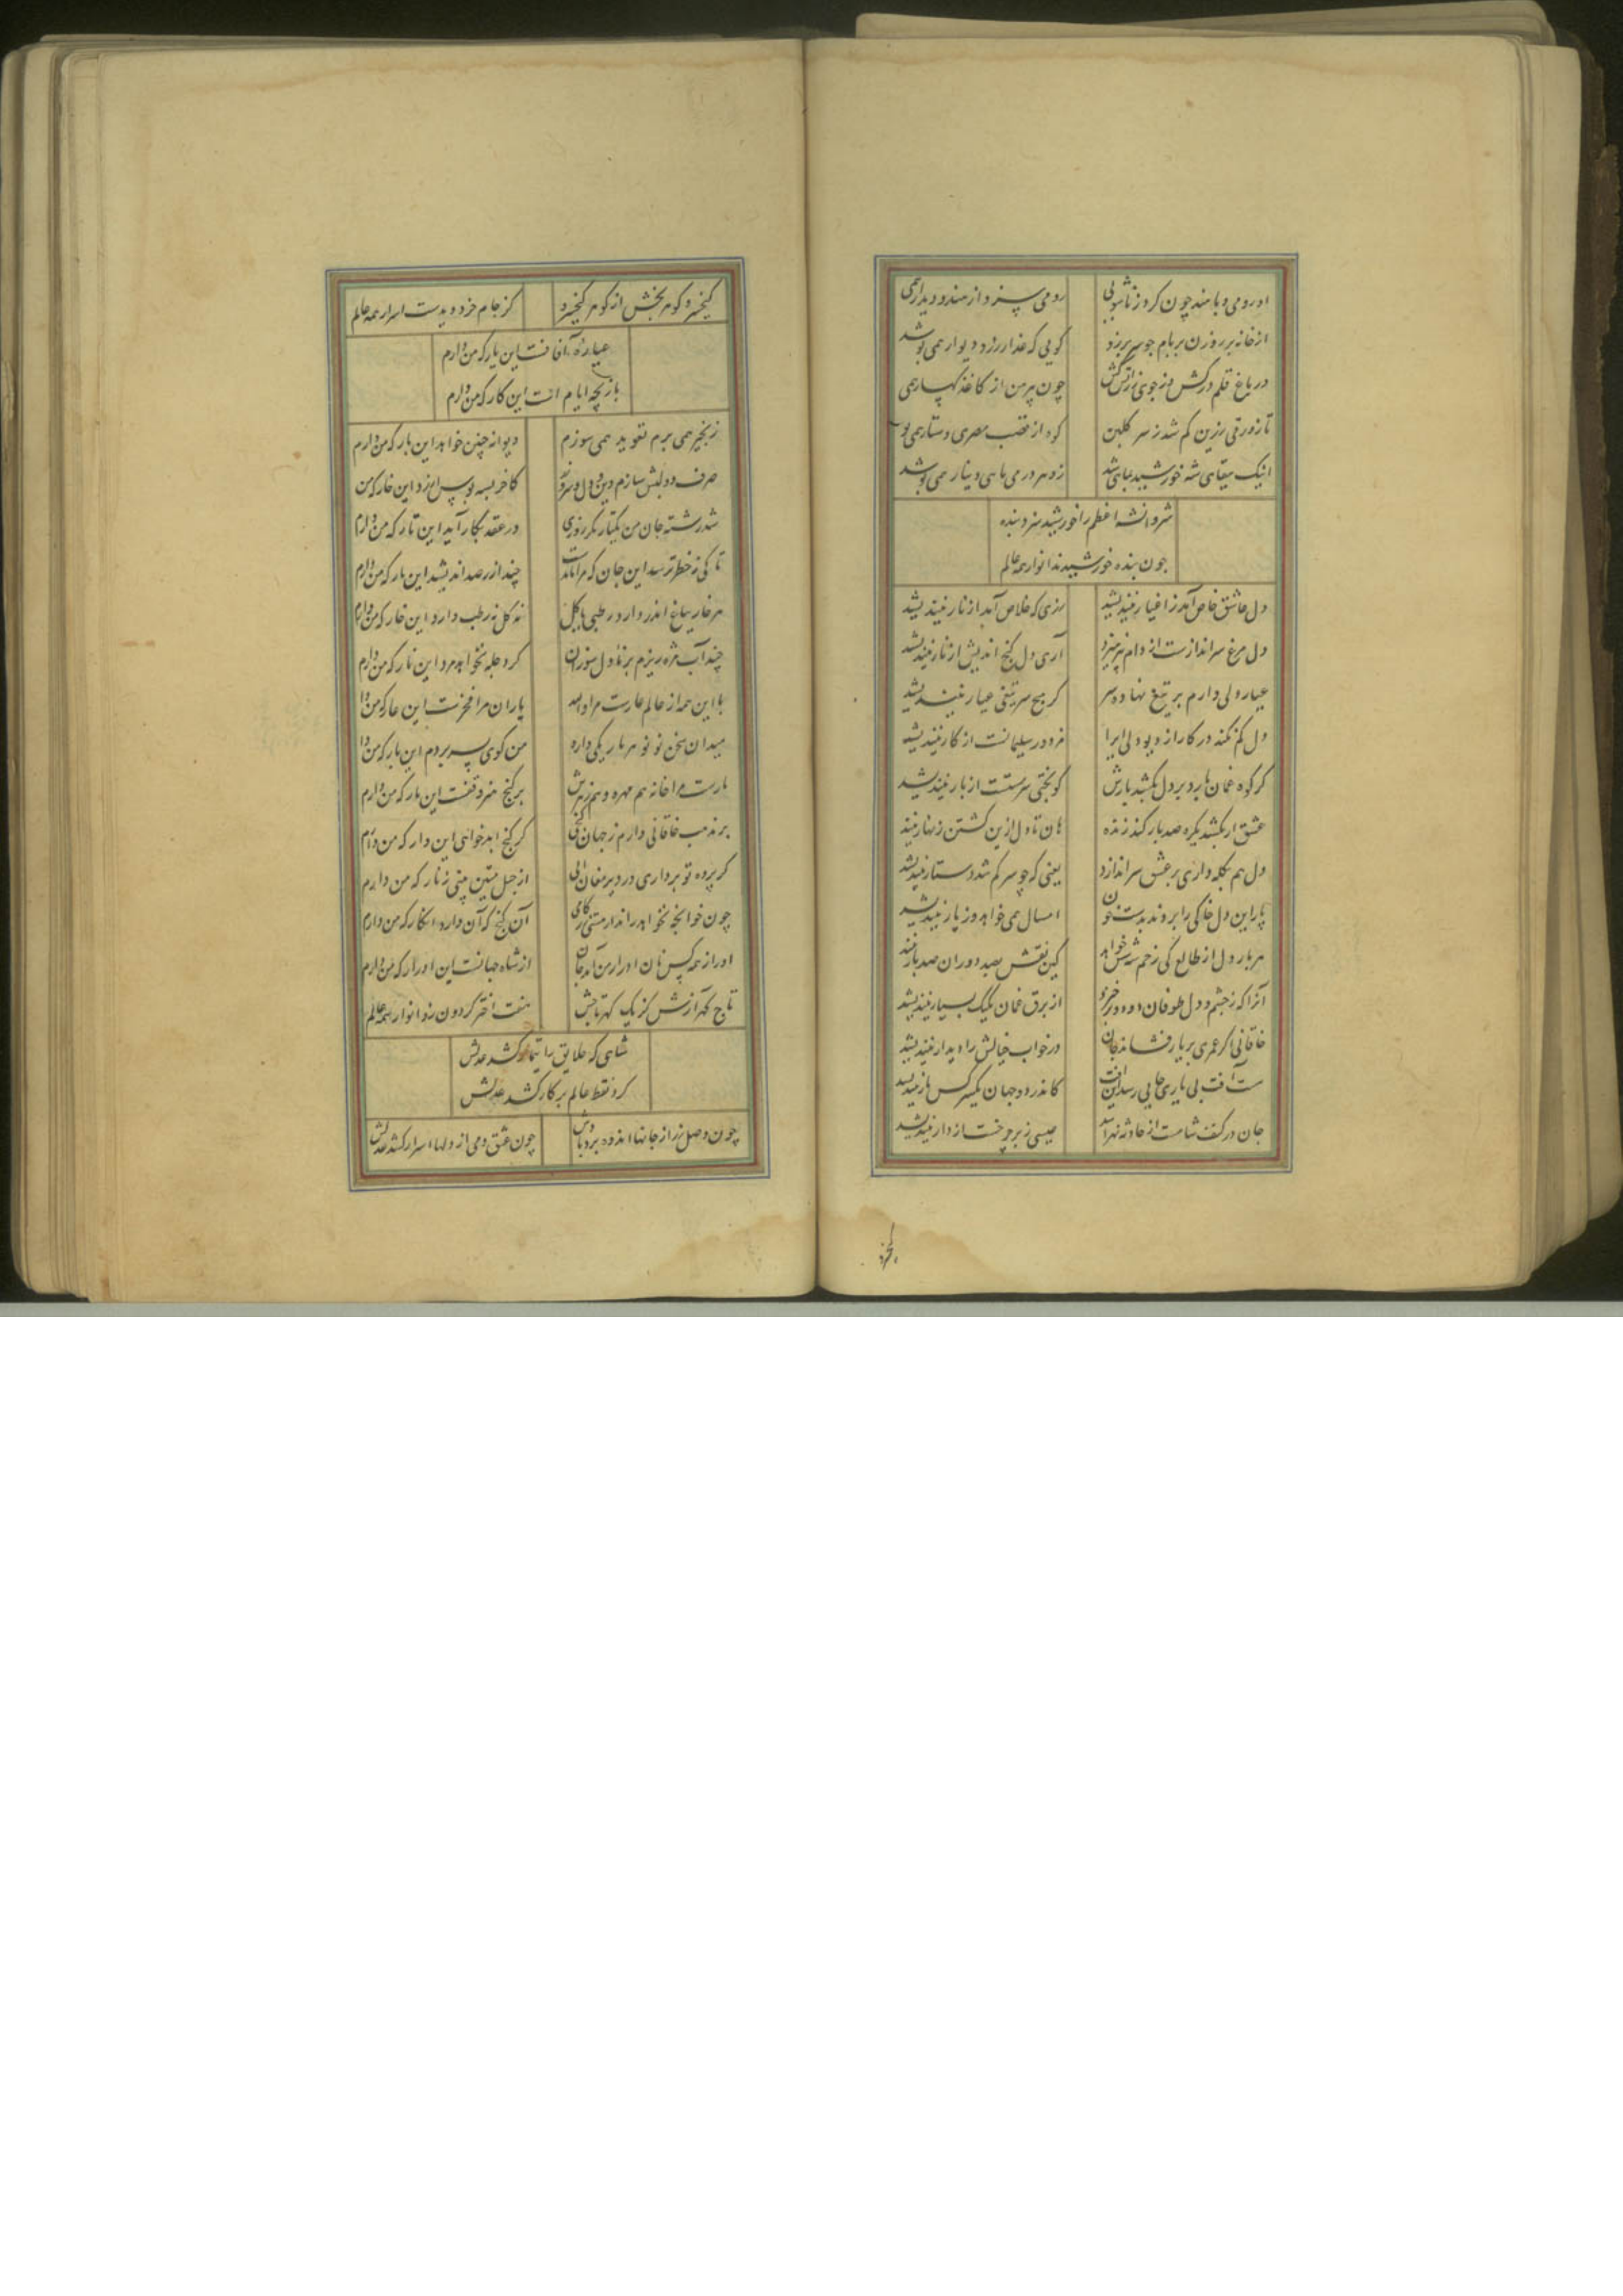 او رومی و با هند چون کرد زناشویی رومی پسر از هندو دیدار همی
از خانه بر روزن بر بام چو سر برزد کویی که عذار رز دیوار همی پوشد
در باغ قلم درکش وز جوی چون پیرمن از کاغذ کهسار همی
تا زورقی زرین کم شد ز سر کلبن کوه از قصب مصری دستار همی
اینک سقای شه خورشید زو هر درمی ماهی دینار همی پوشد
شروانشه اعظم را خورشید سزد بنده
چون بنده خورشیدند انوار همه عالم
دل عاشق خاص آمد ز اغیار نیندیشد زری که خلاص آمد از نار نیندیشد
دل مرغ سراندازست از دام نپرهیزد آری دل کنج اندیش از نار نیندیشد
عیار دلی دارم بر تیغ نهاده سر کز هیچ سر تیغی عیار نیندیشد
دل کم نکند در کار از دیو دلی ایرا مزدور سلیمانست از کار نیندیشد
کر کوه غمان بارد بر دل بکشد بارش کو بختی سرمستست از بار نیندیشد
عشق ار بکشد یکره صد بار کند زنده هان تا دل ازین کشتن زنهار نیند
دل هم بکله داری بر عشق سر اندازد یعنی که چو سر کم شد دستار نیندیشد
پار این دل خاکی را بردند بدست خون امسال همی خواهد وز پار نیندیشد
هر بار دل از طالع کی زخم شش خواهد کین نقش بصد دوران صد بار
آنرا که ز چشم و دل طوفان دوه دو برخیزد از برق غمان یکیک بسیار نیندیشد
خاقانی اکر عمری بر یار فشاند جان در خواب خیالش را دیدار نیندیشد
ست آفت بی یاری جایی رسد این آفت کاندر دو جهان یکسر کس یار نیندیشد
جان در کنف شاهست از حادثه نهراسد عیسی زبر چرخست از دار نیندیشد
کیخسرو
کیخسرو کوهر بخش از کوهر کیخسرو کز جام خرد دیدست اسرار همه عالم
عیاره آفاقست این یار که من دارم
بازیچه ایام است این کار که من دارم
زنجیر همی برم تعوید همی سوزم دیوانه چنین خواهد این یار که من دارم
صرف دو لبش سازم دین و دل و کاخر بسه بوس ارزد این خار که من
شد رشته جان من یکتار مکر روزی در عقد بکار آید این تار که من دارم
تا کی ز خطر ترسد این جان که مرا ماندست چند از رصد اندیشد این بار که من دارم
هر خار بباغ اندر دارد رطبی یا کل نه کل نه رطب دارد این خار که من دارم
چند آب مژه ریزم بر نار دل سوزان کز دجله نخواهد مرد این نار که من دارم
با این همه از عالم عارست مرا والله یاران مرا فخرست این عار که من
میدان سخن نو نو هر بار یکی دارد من کوی بسر بردم این بار که من
مارست مرا خامه هم مهره و هم زهرش بر کنج هنر وقفست این مار که من دارم
بر مذهب خاقانی دارم ز جهان کنجی کر کنج ابد خواهی این دار که من دارم
کر پرده تو برداری در دیر مغان آیی از حبل متین بینی زنار که من دارم
چون خوانچه نخواهد راند از مستی آن کنج که آن دارد انکار که من دارم
او را ز همه کس نان ادرار من آمد جان از شاه جهانست این ادرار که من دارم
تاج کهر آرش کز یک کهر تاجش هفت اختر کردون زد انوار همه عالم
شاهی که خلایق را تیمار کشد عدلش
کرد نقط عالم پرکار کشد عدلش
چون وصل زر از جانها اندوه برد چون عشق دمی از دلها اسرار کشد عدلش